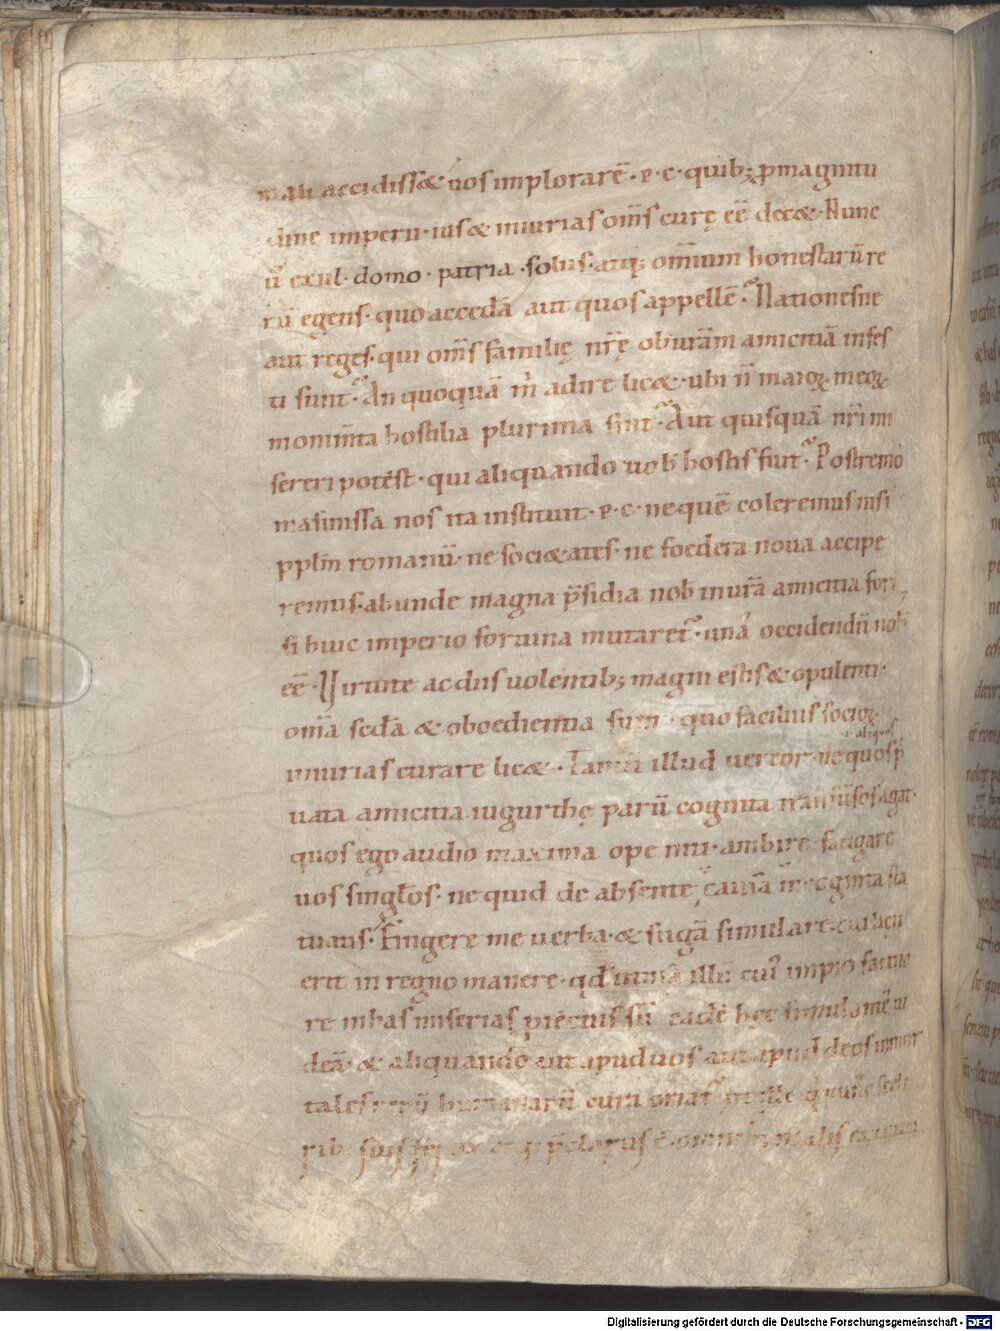 mali accidiss& uos implorarē · p · c · quib; ꝓ magnitu
dine imperii · ius & iniurias om̄s curę ēē dec& · Nunc
ū exul · domo · patria · solus · atq; omīum honestarū re
rū egens · quo accedā aut quos appellē · Nationes ne
aut reges · qui om̄s familię nr̄ę ob urām amicitiā infes
ti sunt · An quoquā m̄ adire lic& · ubi n̄ maioꝝ meoꝝ
monimta hostilia plurima sint · Aut quisquā nr̄i mi
sereri potest · qui aliquando uob hostis fuit · Postremo
masinissa nos ita instituit · p · c · ne quē coleremus nisi
pplm̄ romanū · ne soci&ates · ne foedera noua accipe
remus · abunde magna p̄sidia nob in urā amicitia fore
si huic imperio fortuna mutaret · unā occidendū nob
ēē · Uirtute ac diis uolentib; magni estis & opulenti ·
omīa scdā & oboedientia sunt · quo facilius socioꝝ
iniurias curare lic& · Tantū illud uereor · ne quos p̄
aliquos
uata amicitia iugurthę parū cognita transūsos agat ·
quos ego audio maxima ope niti · ambire · fatigare
uos singlos · ne quid de absente, causā incognita sta
tuatis · Fingere me uerba · & fugā simulare · cui licu
erit in regno manere · qd utinā illū cui impio facino
re in has miserias piectus sū eadē hęc simulantē ui
deā · & aliquando aut apud uos aut apud deos inmor
tales rerū humanarū cura oriat